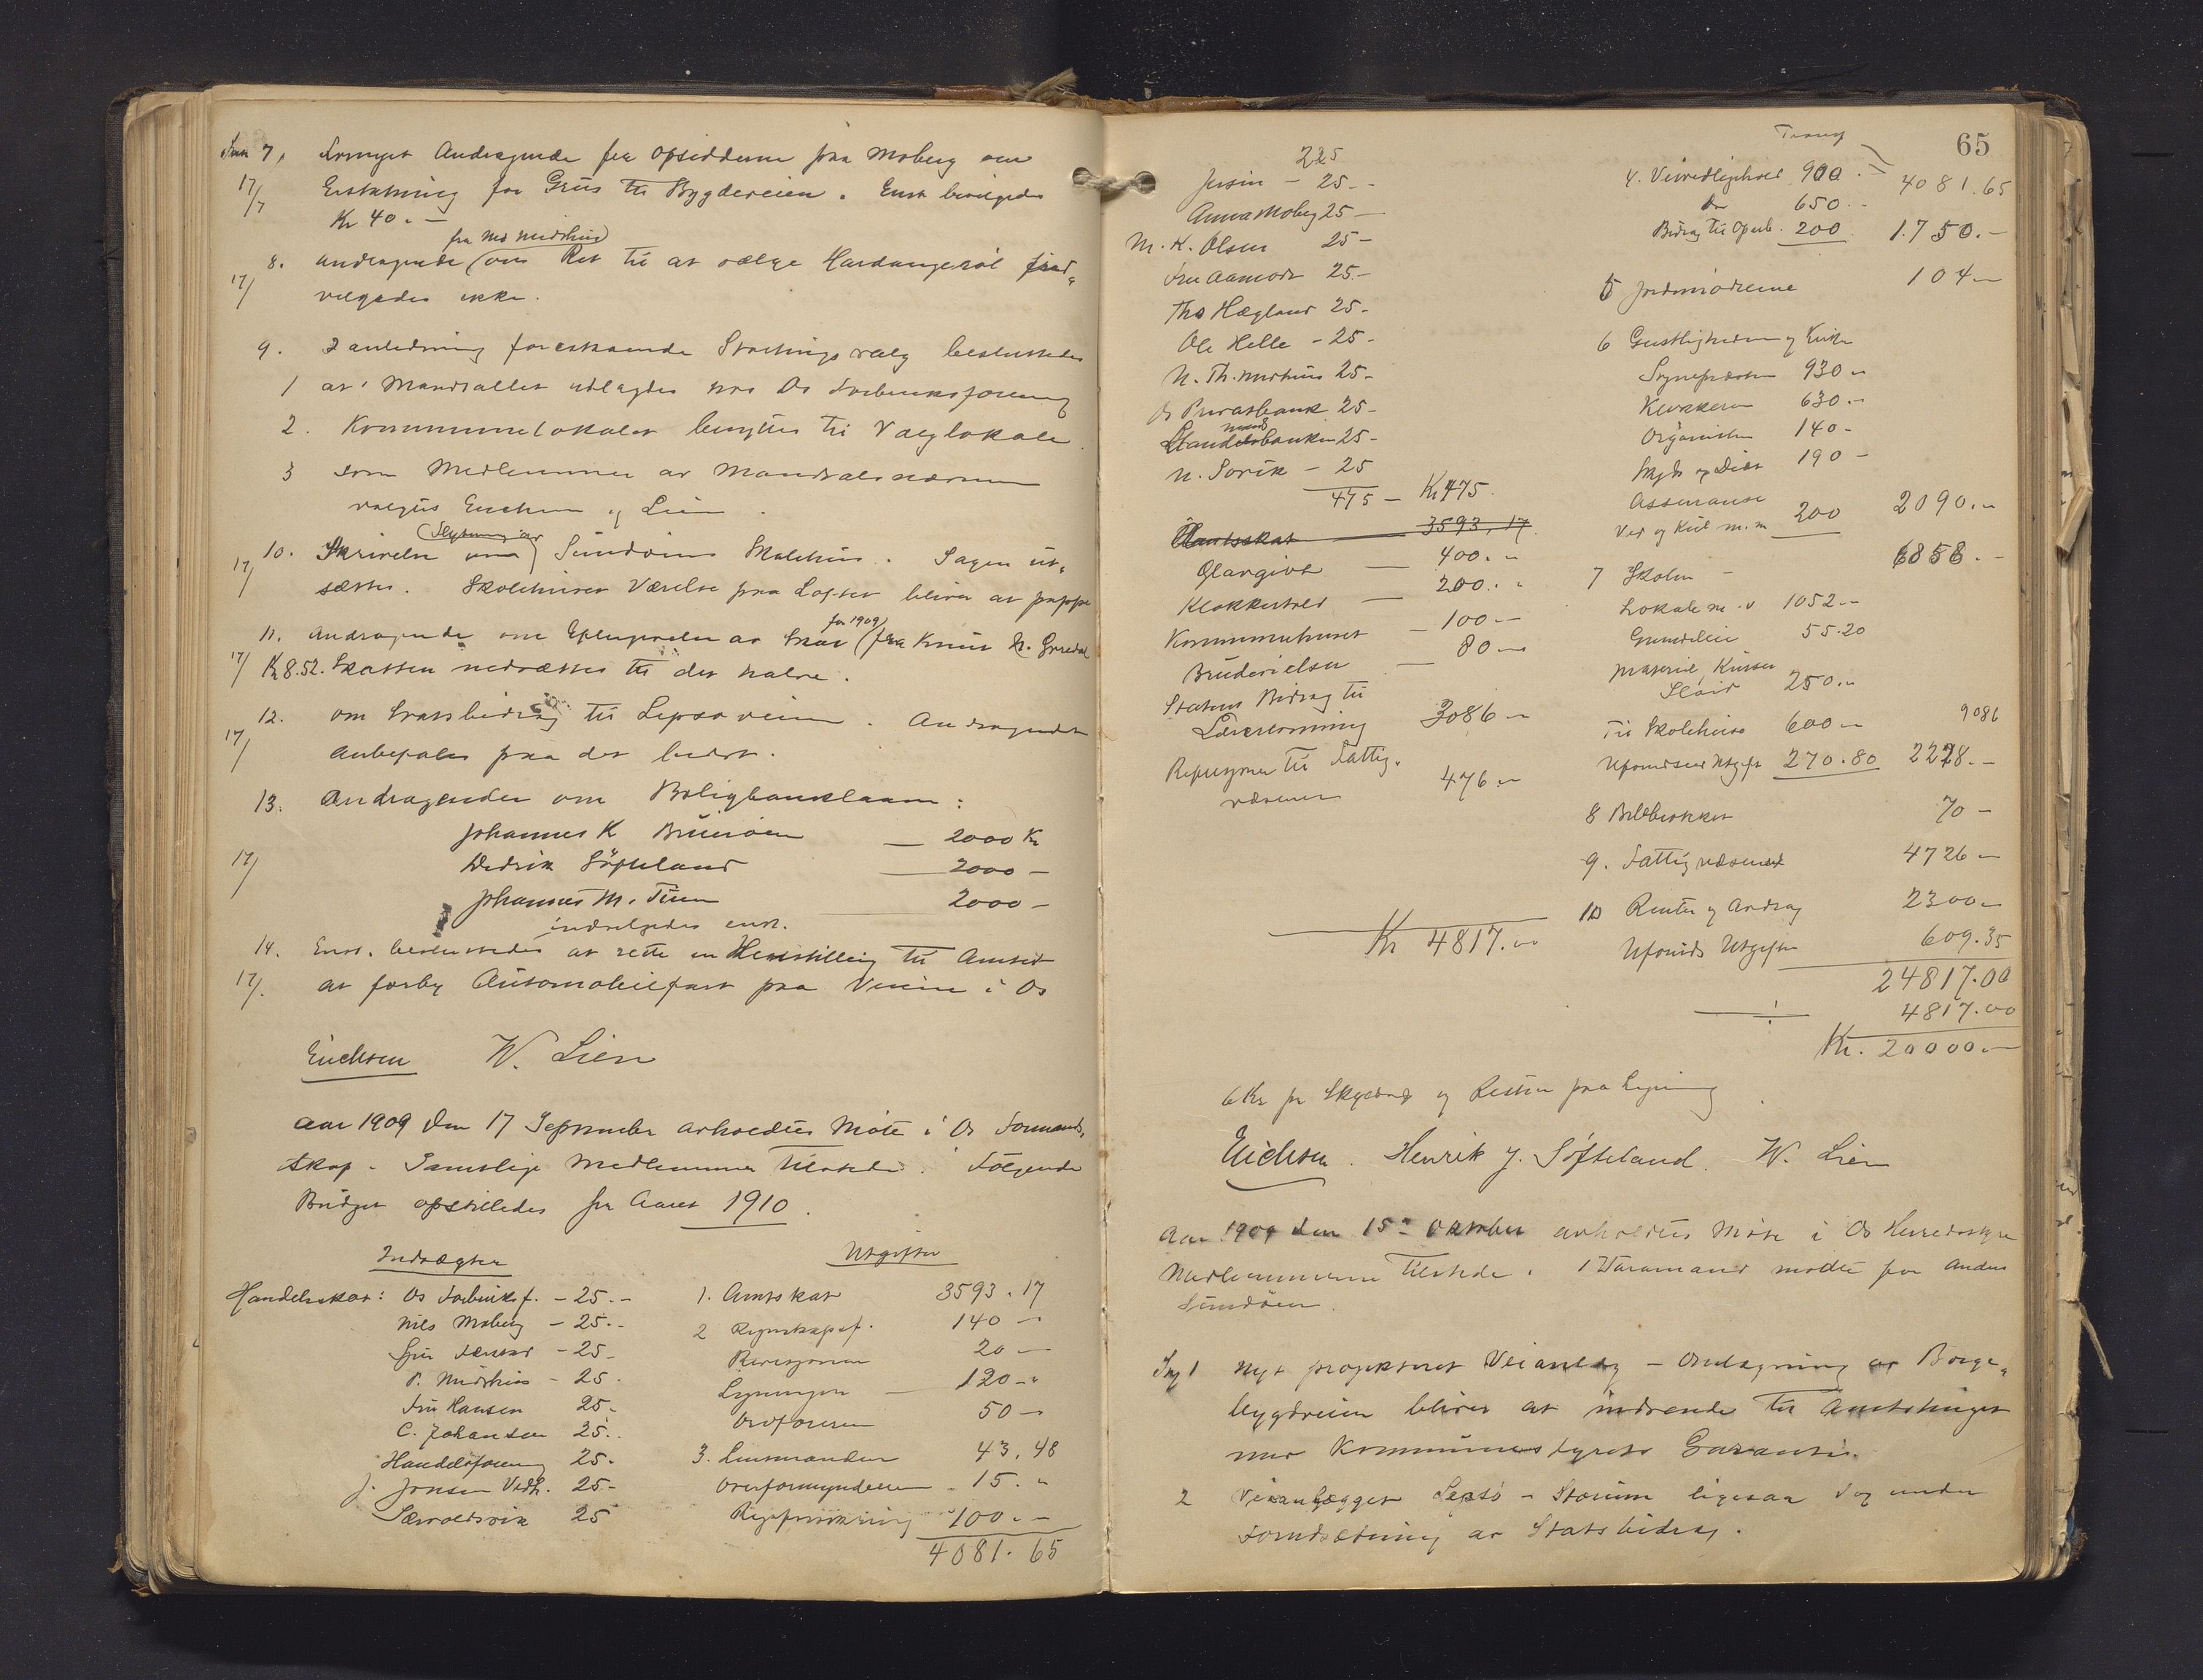 Sag 7. Fornyet Andragende fra Opsidderne paa Moberg om
17/7 Erstatning for Grus til Bygdeveien. Enst. bevilgedes
Kr 40.-
fra Ms Midthus
17/ 8. Andragende om Ret til at sælge Hardangerøl ind-
vilgedes ikke.
9. I anledning forestaaende Stortingsvalg besluttedes
1 at Mandtallet utlægdes hos Os Forbruksforening
2. Kommunelokalet benyttes til Valglokale.
3 som Medlemmer av Mandtalsnævnen
valgtes Erichsen og Lien.
Flytning av
17/ 10. Skrivelse om Sundøens Skolehus. Sagen ut-
sættes. Skolehusets Værelse paa Loftet bliver at pappe
for 1909
11. Andragende om Eftergivelse av Skat fra Knut N.
17/ Kr 8.52. Skatten nedsættes til det halve.
12. om Statsbidrag til Lepsøveien. Andragendet
17/ anbefales paa det bedste.
13. Andragender om Boligbanklaan:
Johannes K Bruarøen — 2000 Kr
17/ Hendrik Søfteland — 2000 -
Johannes M. Tuen — 2000 -
indvilgedes enst.
14. Enst. besluttedes at rette en Henstilling til Amtet
17/. at forby Automobilfart paa Veiene i Os
Erichsen W. Lien
Aar 1909 den 17 September avholdtes Møte i Os Formand-
skap. Samtlige Medlemmer tilstede. Følgende
Budget opstilledes for Aaret 1910.
Indtægter
Handelsskat: Os Forbruksf. - 25.-
Nils Moberg - 25.-
- 25 -
P. Midthus - 25.
Fru Hansen 25.
C. Johansen 25.
Handelsforening 25.
J. Jonsen Vedh. 25 -
Særvoldsvik 25
Utgifter
1. Amtskat 3593.17
2 Regnskapsf. 140 -
Revisjonen 20 -
Ligningen — 120 -
Ordføreren 50 -
3. Lensmanden 43,48
Overformynderen 15.-
100.-
4081.65
65
225
Jusin - 25.-
Anna Moberg 25 -
M. K. Olsen 25 -
Fru Aamodt 25.-
Ths Hægland 25.-
Ole Helle - 25 -
N. Th. Midthus 25 -
Os Privatbank 25 -
Handelsbanken 25 -
N. Sørvik - 25
475 - Kr 475.
Amtsskat — 3593,17
Ølavgivt — 400.-
Klokkertold — 200.-
Kommunehuset — 100.-
Brudevielser — 80 -
Statens Bidrag til
Lærerlønning 3086 -
Refusjoner til Fattig-
væsenet 476.-
Kr 4817.00
Transp. 4081.65
4. Veivedligehold 900.-
do 650.-
Bidrag til Oparb. 200 1.750.-
5 Jordmødrene 104 -
6 Geistligheden og Kirke
Sognepræsten 930 -
Klokkeren 630 -
Organisten 140 -
Skyds og Diæt 190 -
Assurance
Ved og Kul m.m 200 2090.-
7 Skolen - 6858.-
Lokale m.v 1052 -
Grundleie 55.20
Materiel, Kurser
Sløid 250.-
9086
Til Skolehuse 600 -
Uforudseet Utgift 270.80 2228.-
8 Belbrækket 70 -
9. Fattigvæsenet 4726 -
10 Renter og Avdrag 2300 -
Uforuds. Utgifter 609.35
24817.00
÷ 4817.00
Kr. 20000.-
6 Kr pr Skyldmark og Resten paa Ligning.
Erichsen. Henrik J. Søfteland. W. Lien
Aar 1909 den 15de Oktober avholdtes Møte i Os Herredsstyre
Medlemmerne tilstede. 1 Varamand mødte for Anders
Sundøen.
Sag 1 Nyt projekteret Veianlæg - Omlægning av Borge-
bygdveien bliver at indsende til Amtstinget
med Kommunestyrets Garanti.
2 Veianlægget Lepsø - Storum ligesaa dog under
Forudsætning av Statsbidrag.